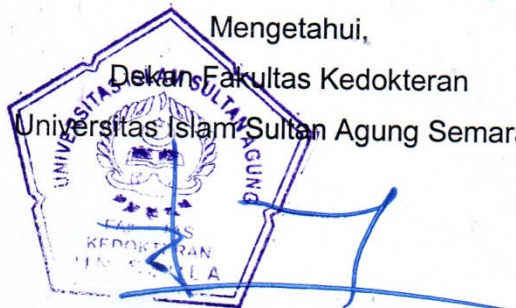 Mengetahui,
Dekan Fakultas Kedokteran
Universitas Islam Sultan Agung Semara
UNIVERSITAS ISLAM SULTAN AGUNG
KEDOKTERAN